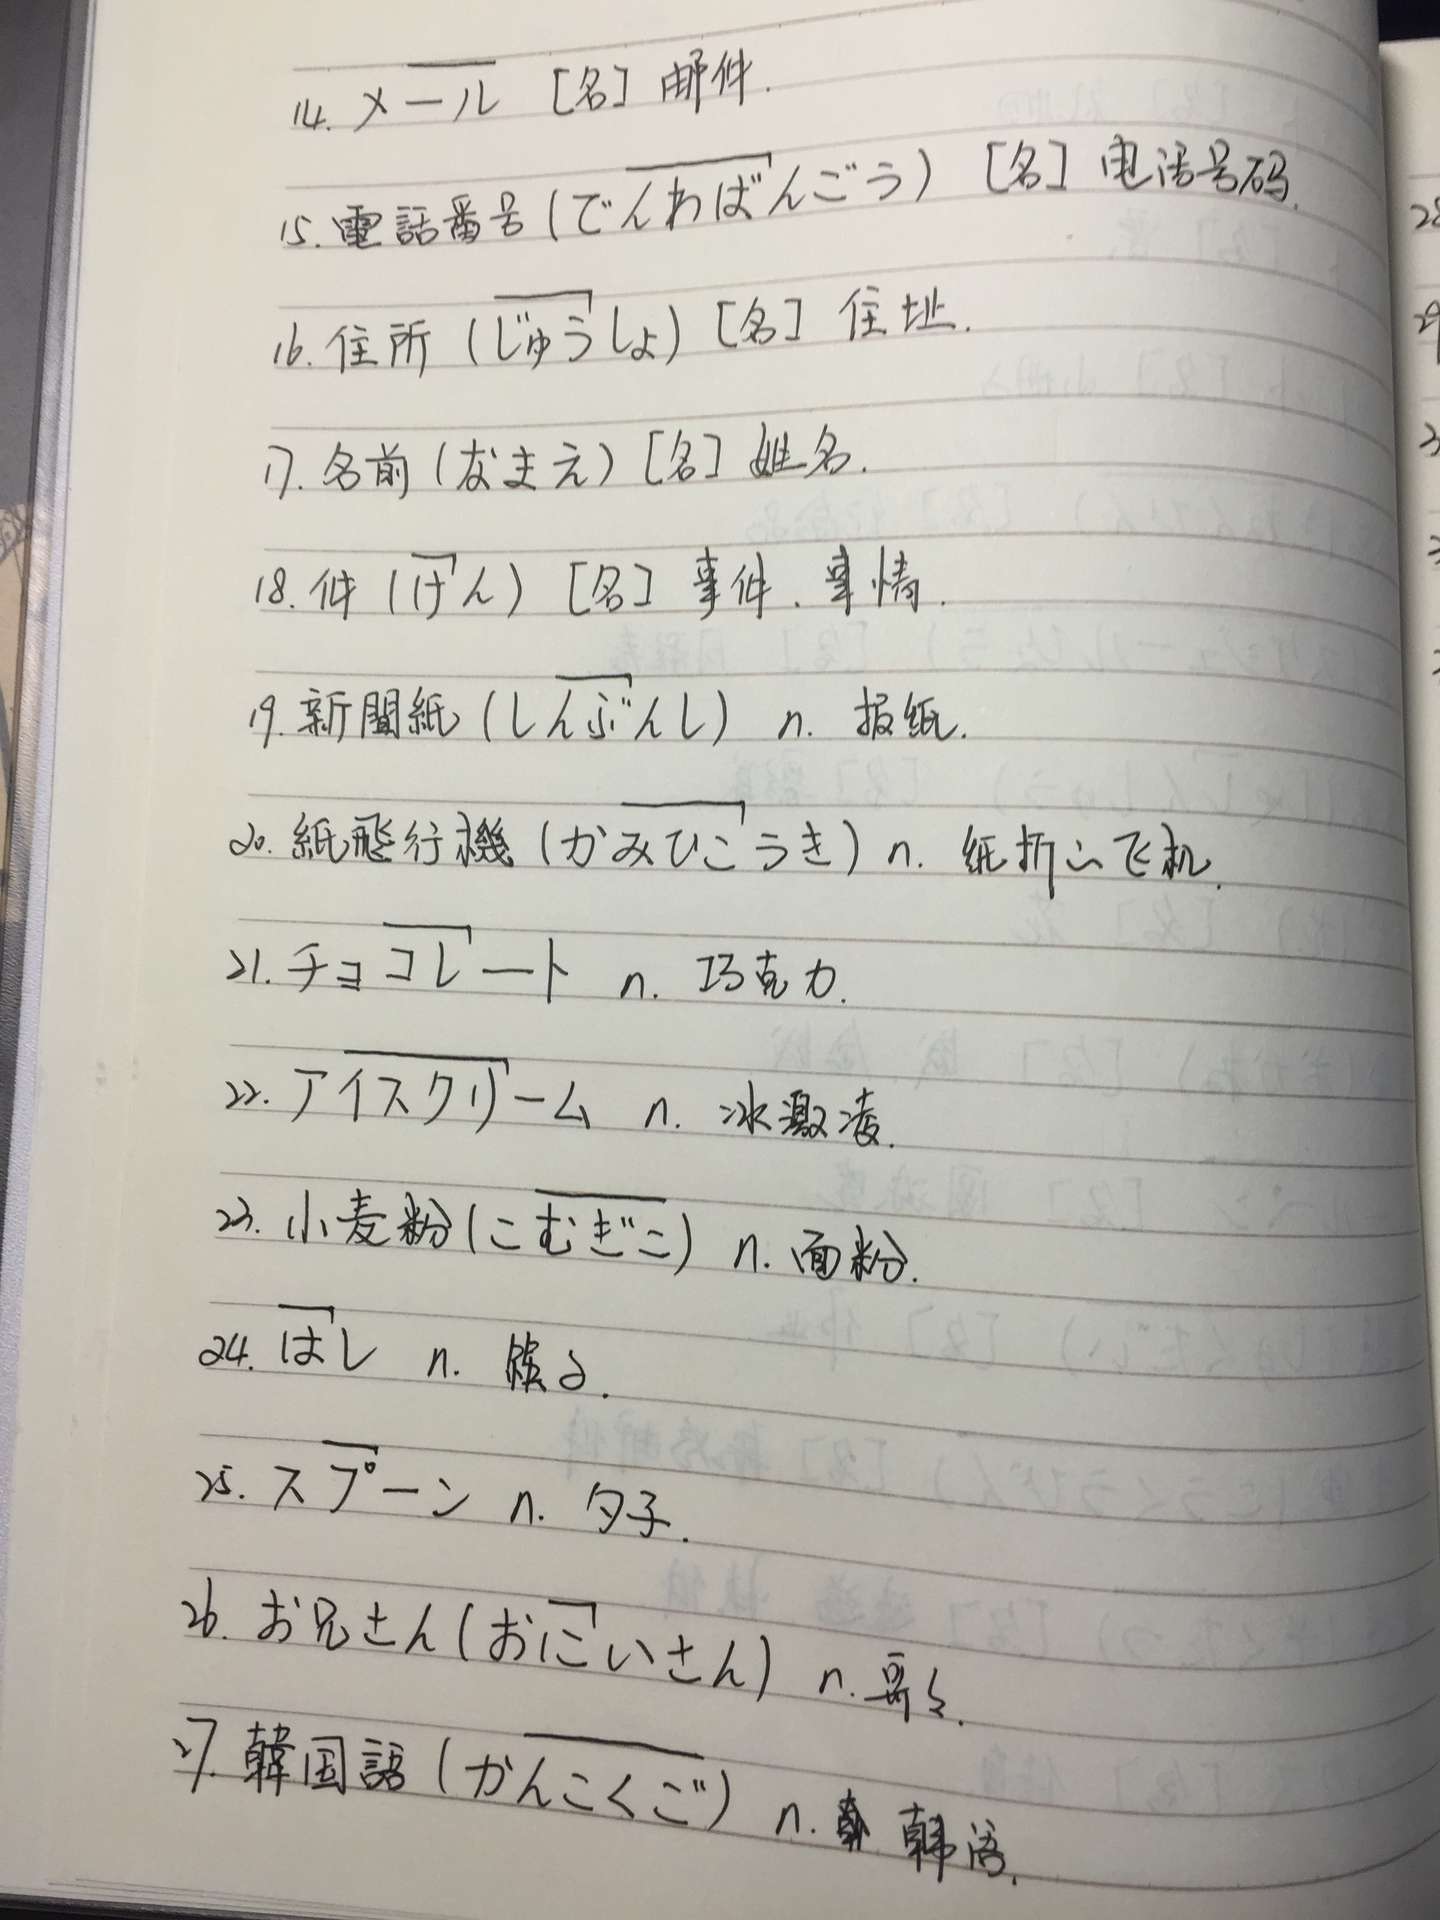 14. メール [名] 邮件.
15. 電話番号 (でんわばんごう) [名] 电话号码.
16. 住所 (じゅうしょ) [名] 住址.
17. 名前 (なまえ) [名] 姓名.
18. 件 (けん) [名] 事件、事情.
19. 新聞紙 (しんぶんし) n. 报纸.
20. 紙飛行機 (かみひこうき) n. 纸折的飞机.
21. チョコレート n. 巧克力.
22. アイスクリーム n. 冰激凌.
23. 小麦粉 (こむぎこ) n. 面粉.
24. はし n. 筷子.
25. スプーン n. 勺子.
26. お兄さん (おにいさん) n. 哥々.
27. 韓国語 (かんこくご) n. 韩语.
28
29